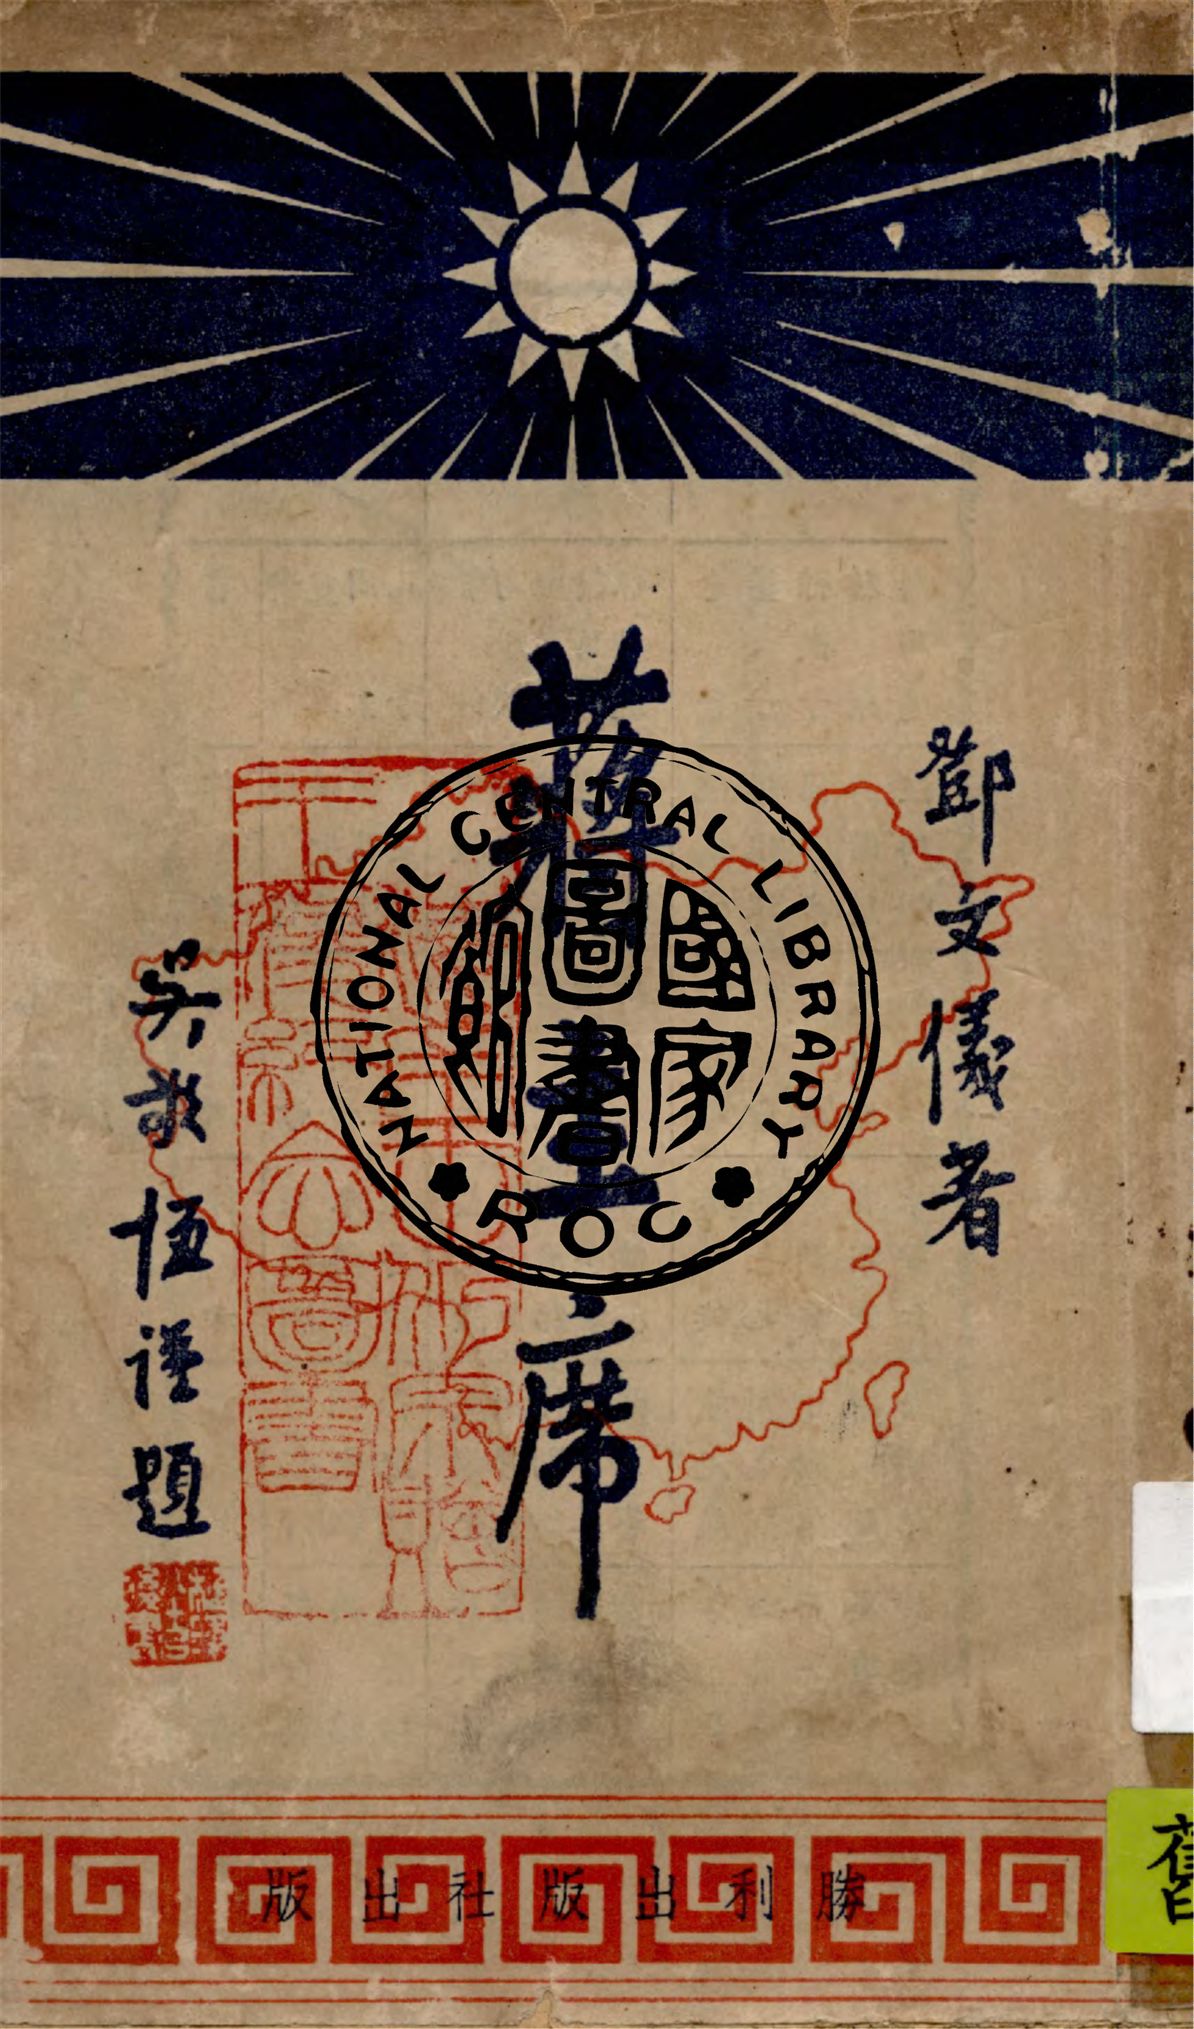 鄧文儀著
蔣主席
吳敬恆謹題
勝利出版社出版
NATIONAL CENTRAL LIBRARY
國家圖書館
ROC
舊